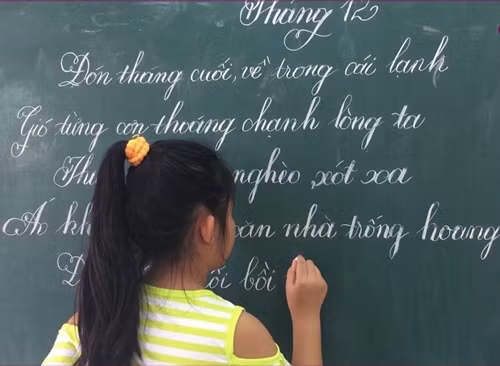 Tháng 12
Đón tháng cuối, về trong cái lạnh
Gió từng cơn thoáng chạnh lòng ta
nghèo, xót xoa
Áo nhà trống hoang
bồi